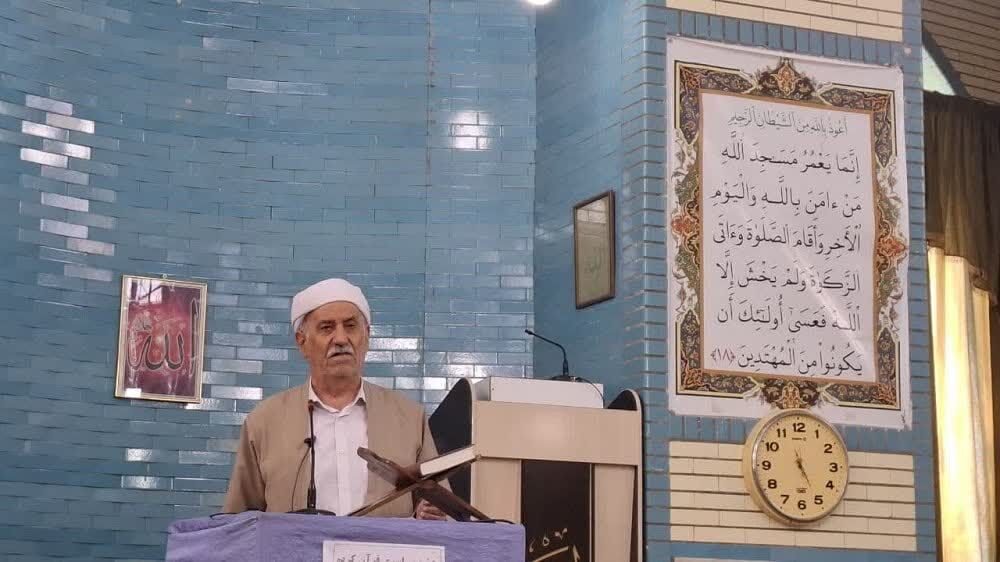 أَعُوذُ بِاللَّهِ مِنَ الشَّيْطَانِ الرَّجِيمِ
إِنَّمَا يَعْمُرُ مَسَٰجِدَ اللَّهِ
مَنْ ءَامَنَ بِاللَّهِ وَالْيَوْمِ
الْأَخِرِ وَأَقَامَ الصَّلَوٰةَ وَءَاتَى
الزَّكَوٰةَ وَلَمْ يَخْشَ إِلَّا
اللَّهَ فَعَسَىٰ أُولَٰئِكَ أَن
يَكُونُوا۟ مِنَ الْمُهْتَدِينَ ﴿۱۸﴾
الله
12
11 1
10 2
9 3
8 4
7 5
6
قرآن کریم